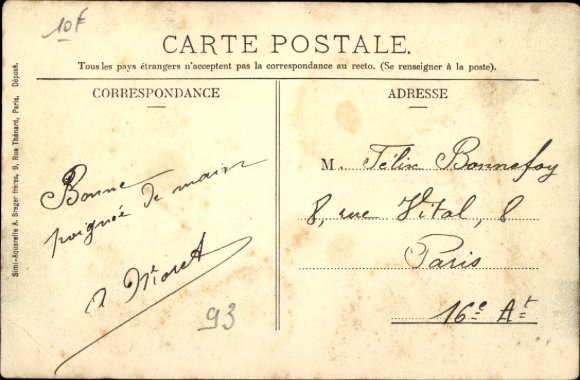 10F
CARTE POSTALE.
Tous les pays étrangers n'acceptent pas la correspondance au recto. (Se renseigner à la poste).
CORRESPONDANCE
Bonne
poignée de main
93
ADRESSE
M. Félix Bonnefoy
8, rue Vital, 8
Paris
16e At
Simi-Aquarelle A. Breger frères, 9, Rue Thénard, Paris. Déposé.